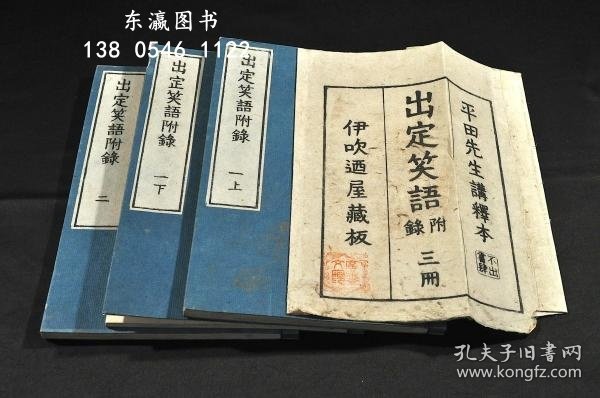 东瀛图书
138 0546 1122
出定笑語附錄
一上
出定笑語附錄
一下
出定笑語附錄
二
平田先生講釋本
不出書肆
出定笑語
附錄
三冊
伊吹迺屋藏板
孔夫子旧书网
www.kongfz.com